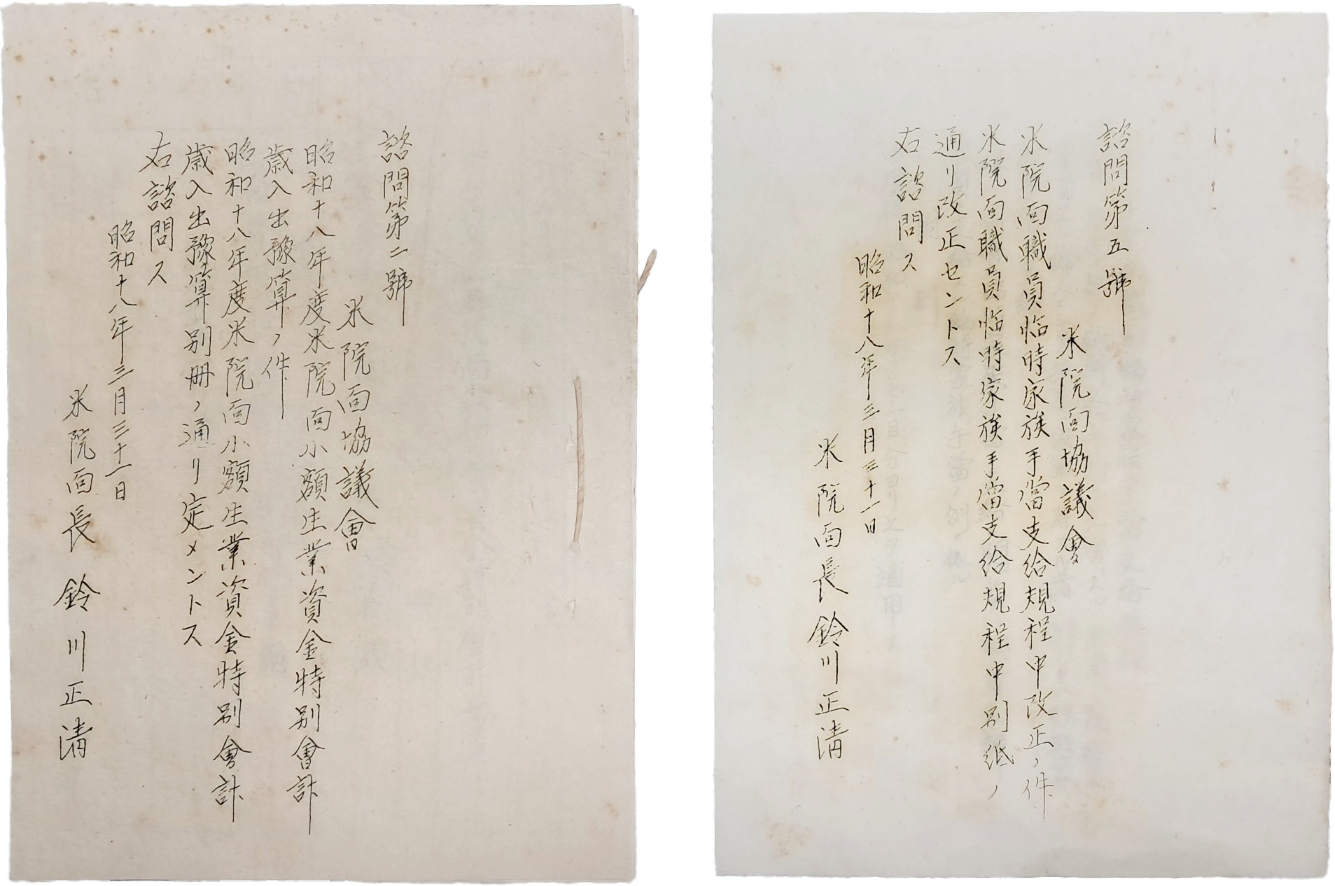 諮問第二號
米院面協議會
昭和十八年度米院面小額生業資金特別會計
歳入出豫算ノ件
昭和十八年度米院面小額生業資金特別會計
歳入出豫算別冊ノ通リ定メントス
右諮問ス
昭和十八年三月三十一日
米院面長 鈴川正清
諮問第五號
米院面協議會
米院面職員臨時家族手當支給規程中改正ノ件
米院面職員臨時家族手當支給規程中別紙ノ
通リ改正セントス
右諮問ス
昭和十八年三月三十一日
米院面長 鈴川正清